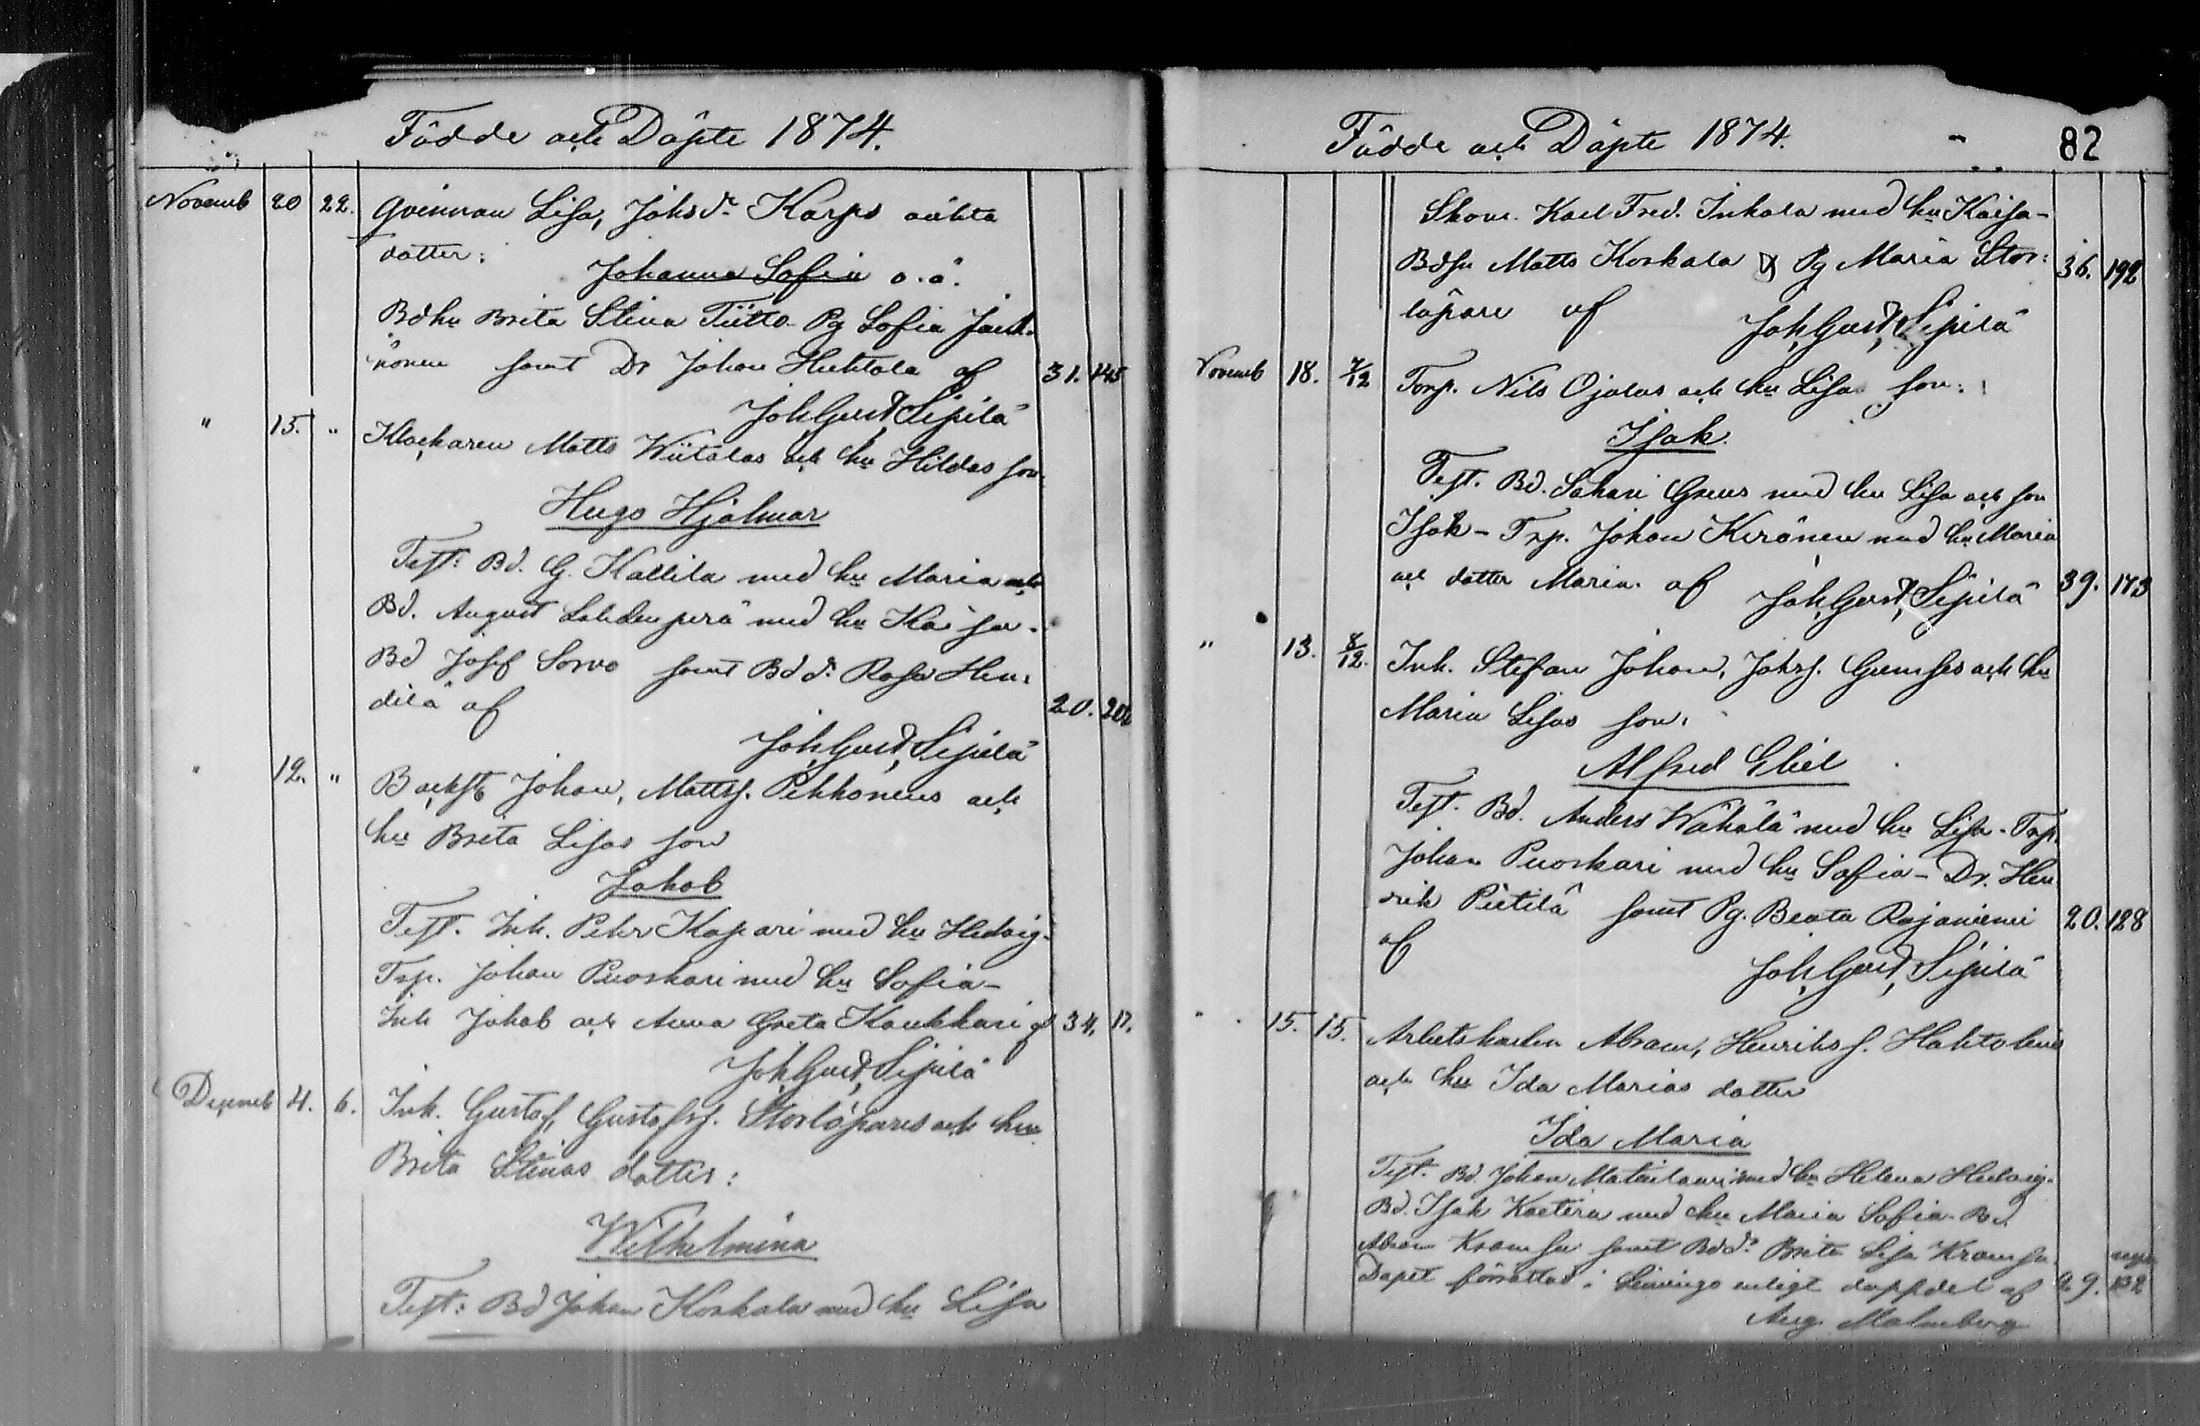 Födde och Döpte 1874.
Novemb 20 22. Qvinnan Lisa, Johsdr Karps oäkta
dotter:
Johanna Sofia o.ä.
Bdhu Brita Stina Tiitto Pg Sofia Jask-
könen samt Dr Johan Huhtala af 31. 145
Joh. Gust. Sipilä
" 15. " Klockaren Matts Wiitalas och hu Hildas son
Hugo Hjalmar
Test: Bd. G. Kallila med hu Maria och
Bd. August Lahdenperä med hu Kaisa.
Bd Josef Sorvo samt Bddr Rosa Hen-
dilä af 20.
Joh. Gust. Sipilä
" 12. " Backst Johan, Mattss. Pekkonens och
hu Brita Lisas son
Jakob
Test. Inh. Pehr Kapari med hu Hedvig.
Trp. Johan Puoskari med hu Sofia-
Inh Jakob och Anna Greta Kaukkari af 34. 17.
Joh. Gust. Sipilä
Decemb 4. 6. Inh. Gustaf, Gustafss. Storlöpares och hu
Brita Stinas dotter:
Wilhelmina
Test: Bd Johan Korkala med hu Lisa
Födde och Döpte 1874. 82
Skom. Karl Fred. Inkala med hu Kaisa-
Bdsn Matts Korkala & Pg Maria Stor- 36. 192
löpare af
Joh. Gust. Sipilä
Novemb 18. 7/12 Torp. Nils Ojalas och hu Lisas son:
Isak
Test. Bd. Sakari Greus med hu Lisa och son
Isak - Trp. Johan Keränen med hu Maria
och dotter Maria. af Joh. Gust. Sipilä 39. 173
" 13. 8/12. Inh. Stefan Johan, Johss. Gumses och hu
Maria Lisas son:
Alfred Eliel
Test. Bd. Anders Wähälä med hu Lisa. Trp.
Johan Puoskari med hu Sofia - Dr. Hen
rik Pietilä samt Pg. Beata Rajaniemi 20. 128
af
Joh. Gust. Sipilä
" 15. 15. Arbetskarlen Abram, Henrikss. Hahtolens
och hu Ida Marias dotter
Ida Maria
Test. Bd. Johan Matinlauri med hu Helena Hedvig.
Bd. Isak Kaetira med hu Maria Sofia. Bd.
Abram Kramsu samt Bddr Brita Lisa Kramsu
Dopet förrättad i Liminga enligt doppdel af 29. 132
Aug. Malmberg